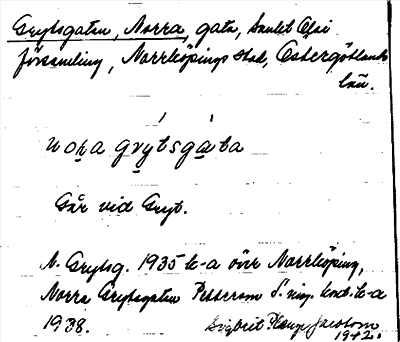 Grytsgatan, Norra, gata, Sankt Olai
församling, Norrköpings stad, Östergötlands
län.
nor̥a grytsgata
Går vid Gryt.
N. Grytsg. 1935 k-a över Norrköping,
Norra Grytsgatan Pettersson
1938.
Sigbrit Jacobson
1942.